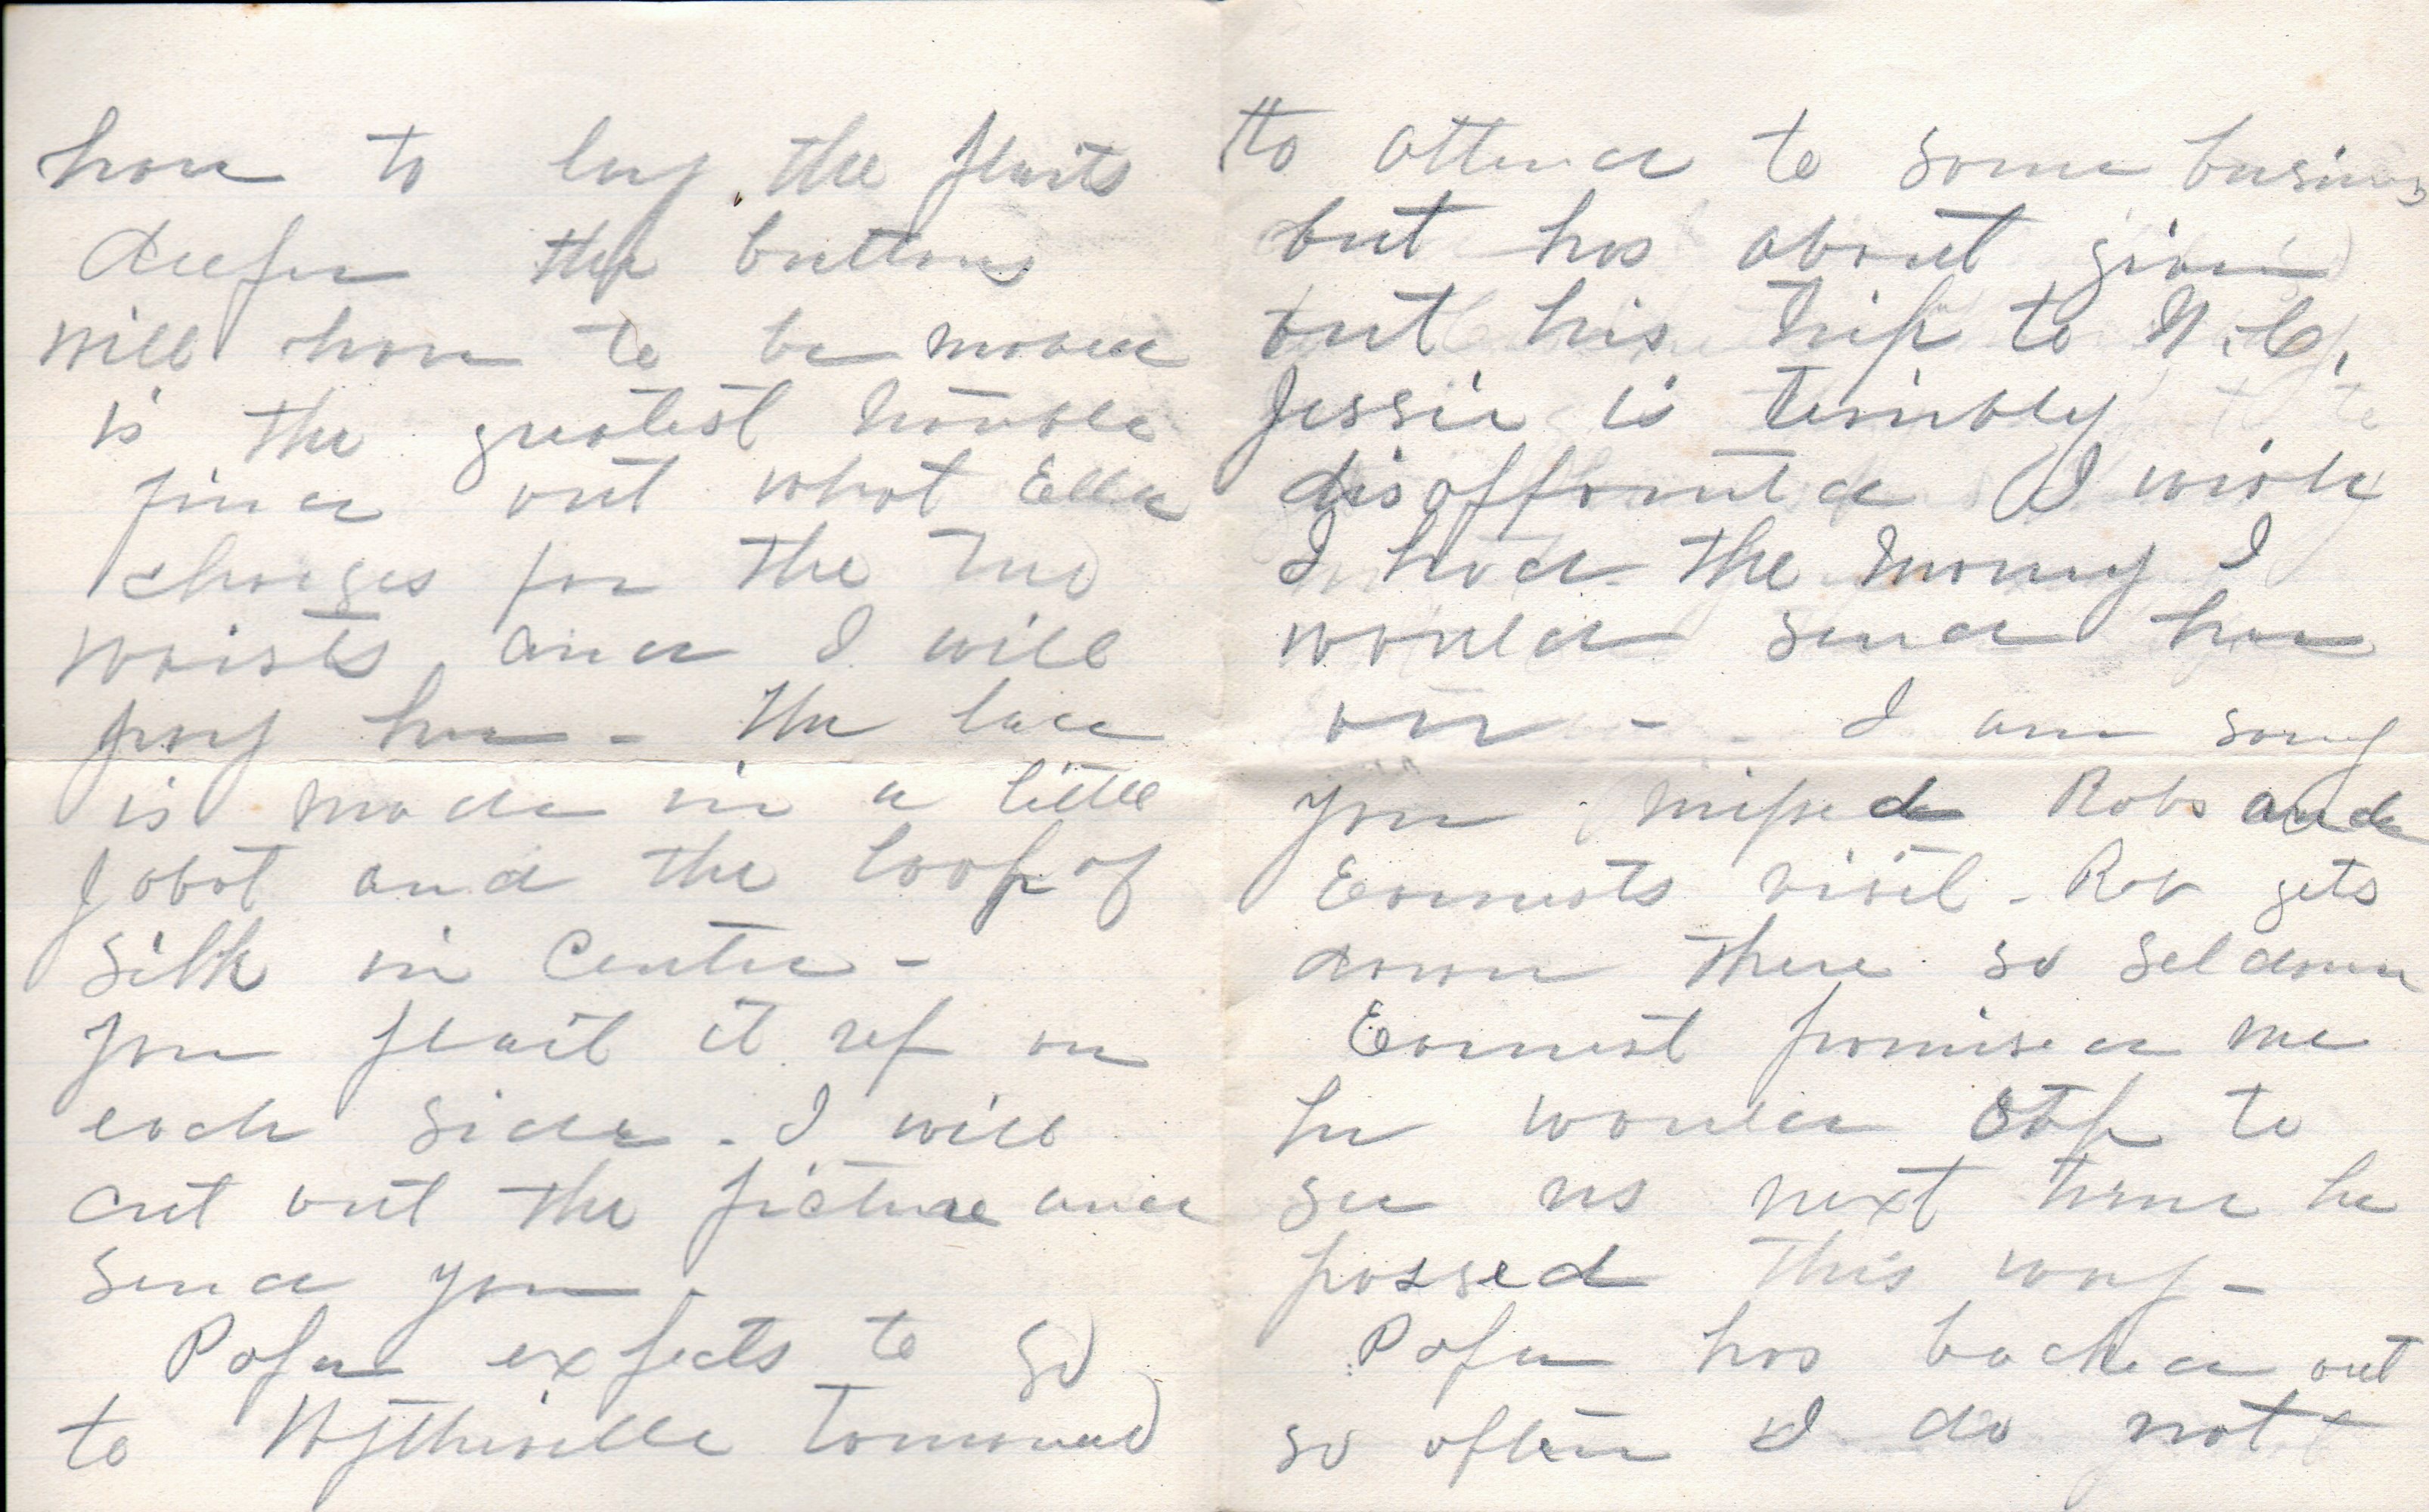 have to lay the plaits
deeper the buttons
will have to be moved
is the greatest trouble
find out what Ella
charges for the two
waists and I will
pay her - The lace
is made in a little
jabot and the loop of
silk in centre -
You plait it up on
each side - I will
cut out the picture and
send you.
Papa expects to go
to Wytheville tomorrow
to attend to some business
but has about given
out his trip to N.C.
Jessie is terribly
disappointed I wish
I had the money I
would send her
on - I am sorry
you missed Robs and
Earnests visit - Rob gets
down there so seldom
Earnest promised me
he would stop to
see us next time he
passed this way -
Papa has backed out
so often I do not